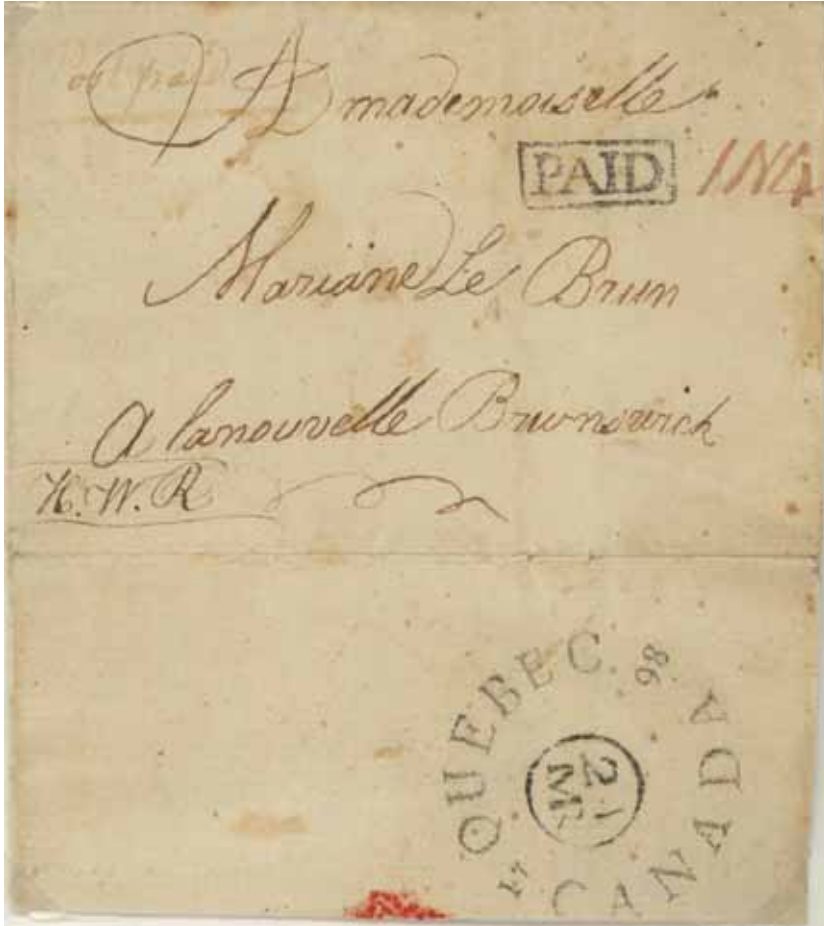 A mademoiselle
PAID
Mariane Le Brun
A lanouvelle Brunswick
H.W.R
QUEBEC
CANADA